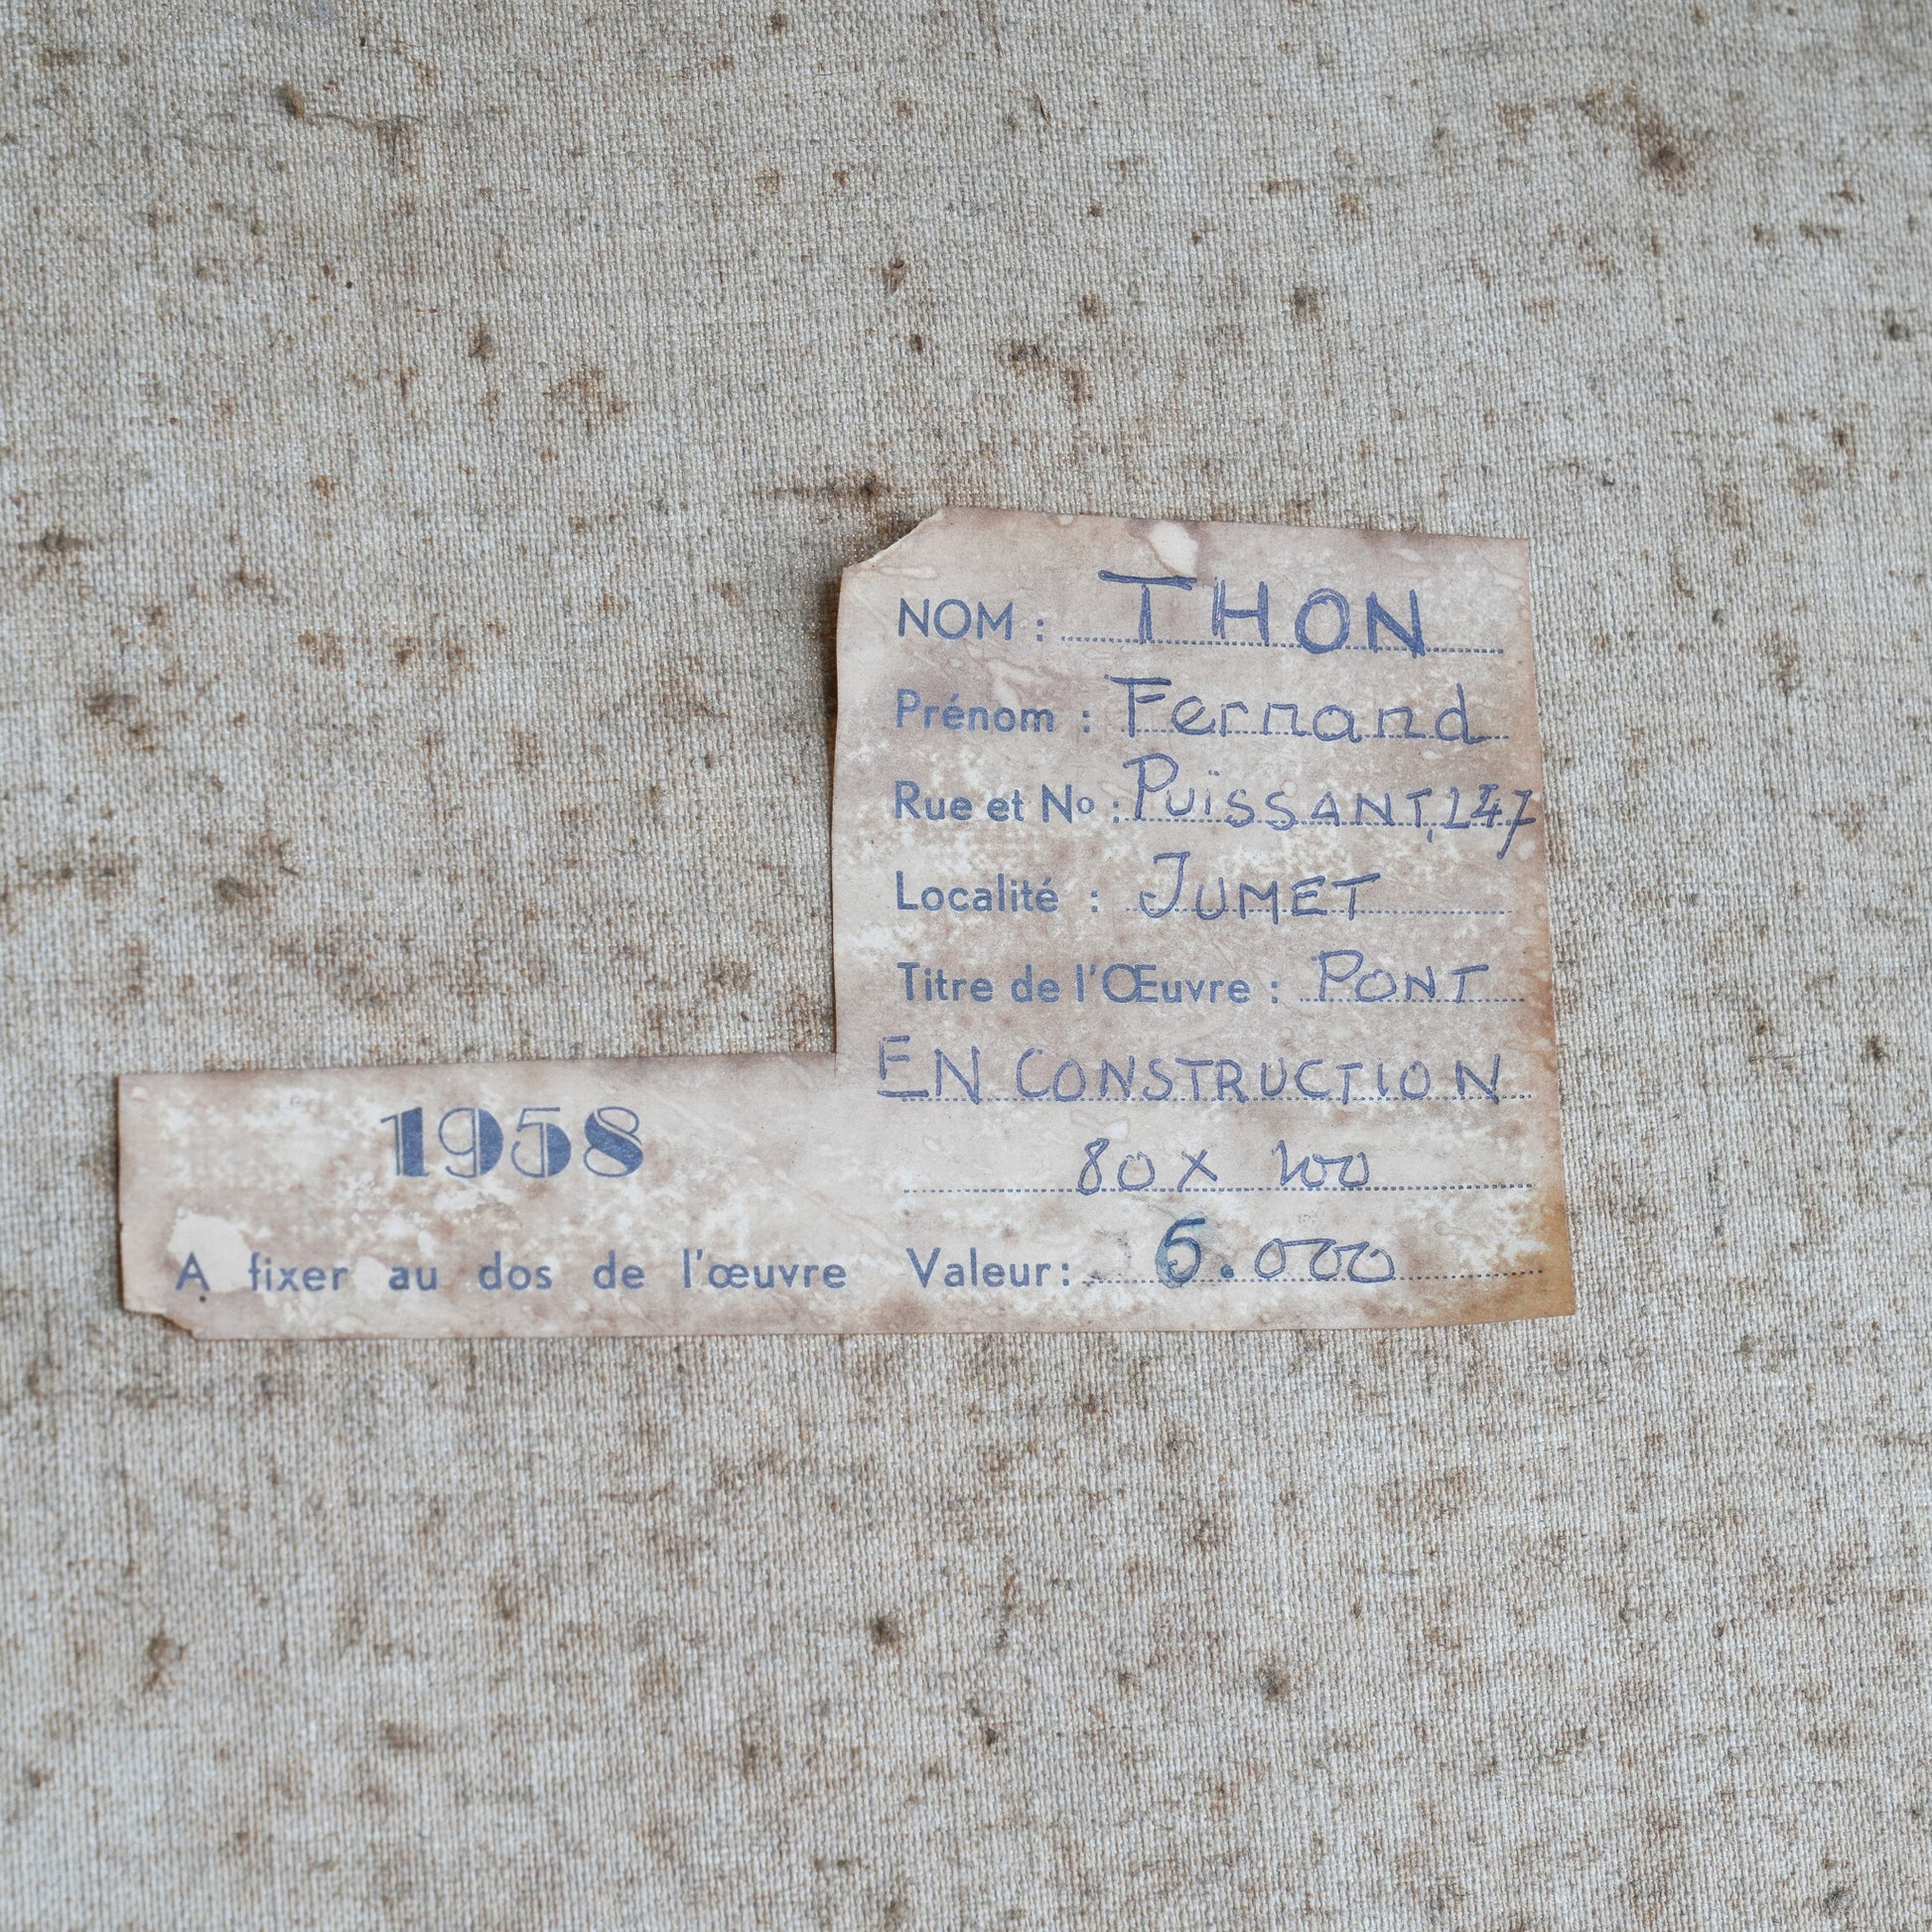 NOM : THON
Prénom : Fernand
Rue et Nº : PUISSANT, 247
Localité : JUMET
Titre de l'Œuvre : PONT
EN CONSTRUCTION
80 X 100
1958
A fixer au dos de l'œuvre Valeur : 5.000